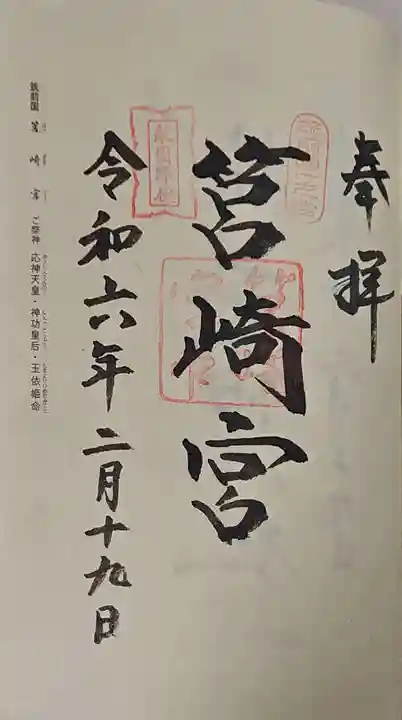 奉拝
筥崎宮
令和六年二月十九日
筑前国 筥崎宮 ご祭神 応神天皇・神功皇后・玉依姫命